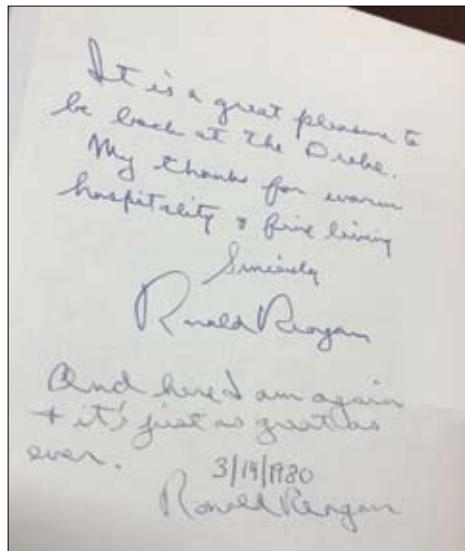 It is a great pleasure to
be back at the Drake.
My thanks for warm
hospitality & fine living
Sincerely
Ronald Reagan
And here I am again
+ it's just as great as
ever.
3/14/1980
Ronald Reagan